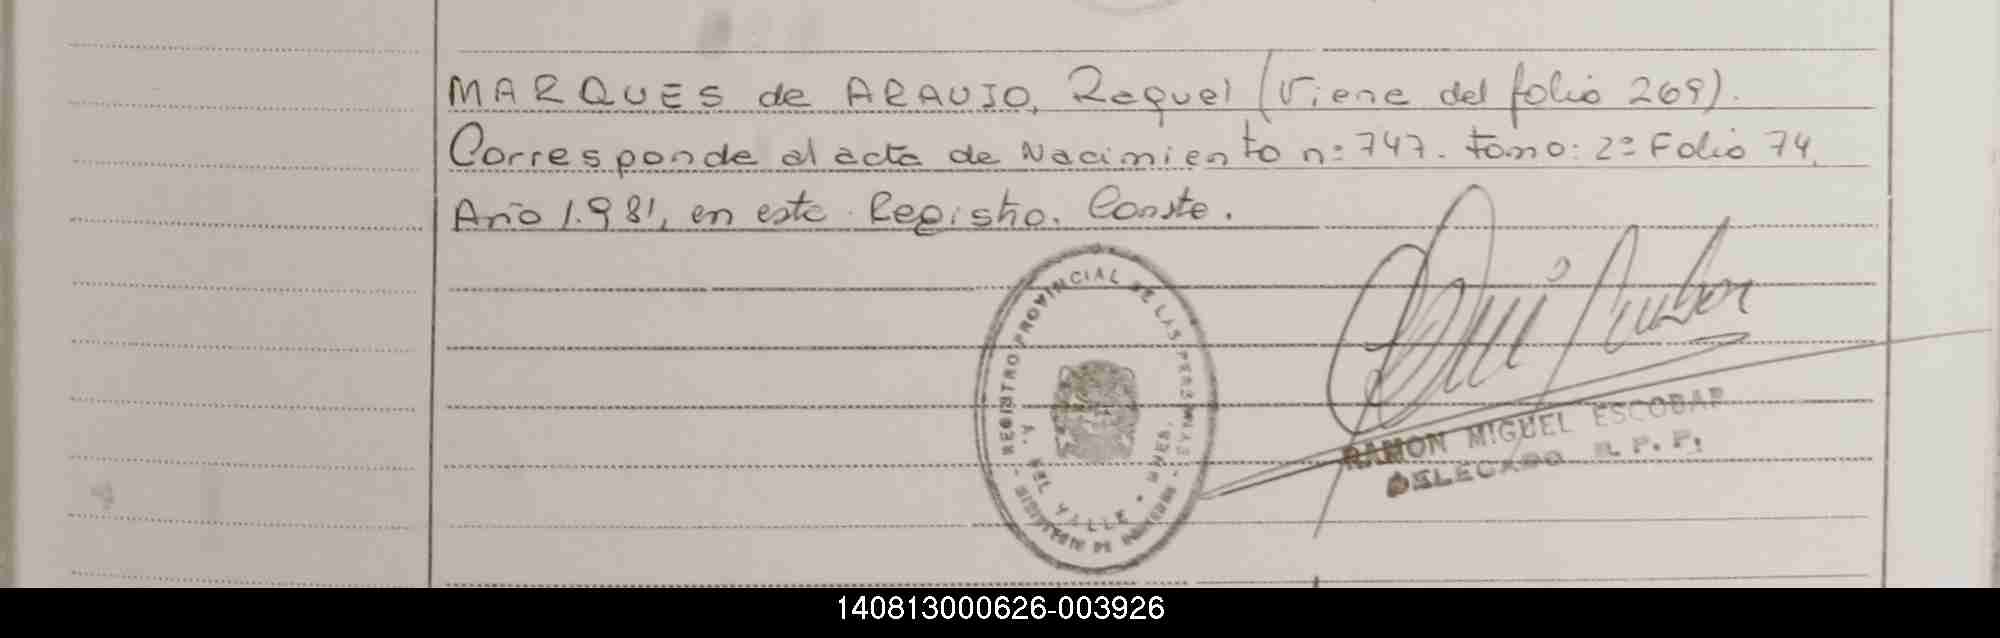 MARQUES de ARAUJO, Raquel (Viene del folio 269).
Corresponde al acta de Nacimiento nº 747. tomo: 2º Folio 74.
Año 1.981, en este Registro. Conste.
REGISTRO PROVINCIAL DE LAS PERSONAS
V. DEL VALLE
MINISTERIO DE GOBIERNO
RAMON MIGUEL ESCOBAR
DELEGADO R. P. P.
140813000626-003926